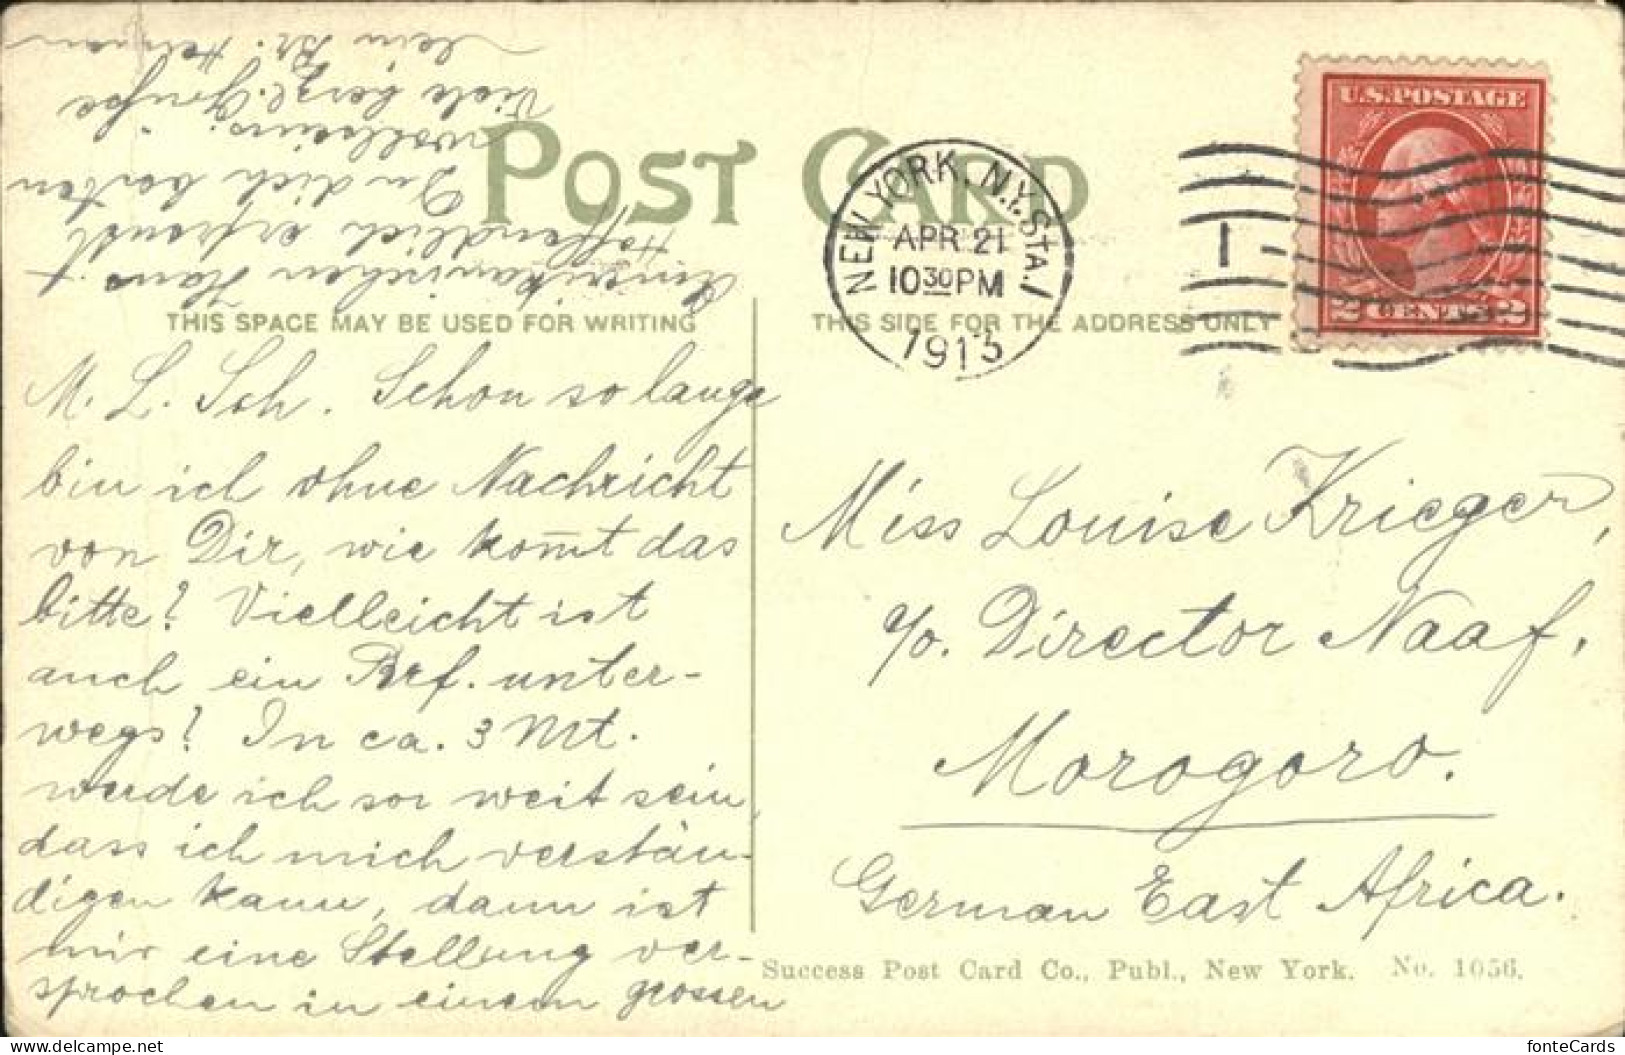 POST CARD
THIS SPACE MAY BE USED FOR WRITING
THIS SIDE FOR THE ADDRESS ONLY
NEW YORK, N.Y. STA. 1
APR 21
10 30 PM
1913
1
U.S. POSTAGE
2 CENTS 2
M. L. Sch. Schon so lange
bin ich ohne Nachricht
von Dir, wie kom̅t das
bitte? Vielleicht ist
auch ein Brf. unter-
wegs? In ca. 3 Mt.
werde ich so weit sein,
dass ich mich verstän-
digen kann, dann ist
mir eine Stellung ver-
sprochen in einem grossen
Amerikanischen Haus.
Hoffendlich erfreust
Du dich besten
wohlseins.
Viele herzl. Grüße
Dein Br. Herman
Miss Louise Krieger,
c/o. Director Naaf,
Morogoro.
German East Africa.
Success Post Card Co., Publ., New York. No. 1056.
fonteCards